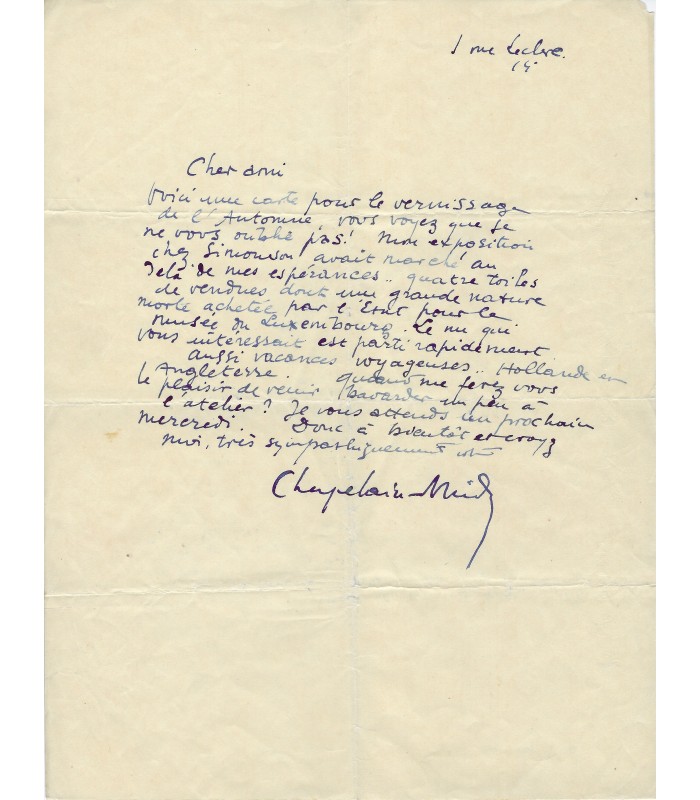 1 rue Leclerc.
Cher ami
Voici une carte pour le vernissage
de l'Automne, vous voyez que je
ne vous oublie pas! Mon exposition
chez Simonson avait marché au
delà de mes espérances.. quatre toiles
de vendues dont une grande nature
morte achetée par l'Etat pour le
musée du Luxembourg. Le nu qui
vous intéressait est parti rapidement
aussi vacances voyageuses.. Hollande en
Angleterre. quand me ferez vous
le plaisir de venir bavarder un peu à
l'atelier? Je vous attends un prochain
mercredi. Donc à bientôt et croyez
moi, très sympathiquement
Chapelain-Midy